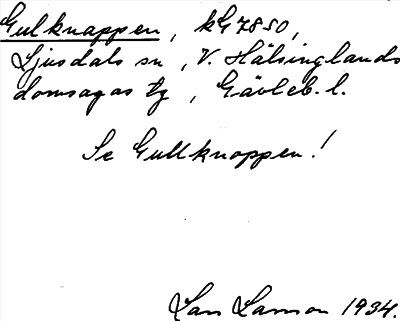 Gulknappen, kG 7850,
Ljusdals sn, V. Hälsinglands
domsagas tg, Gävleb. l.
Se Gullknappen!
Lars Larsson 1934.